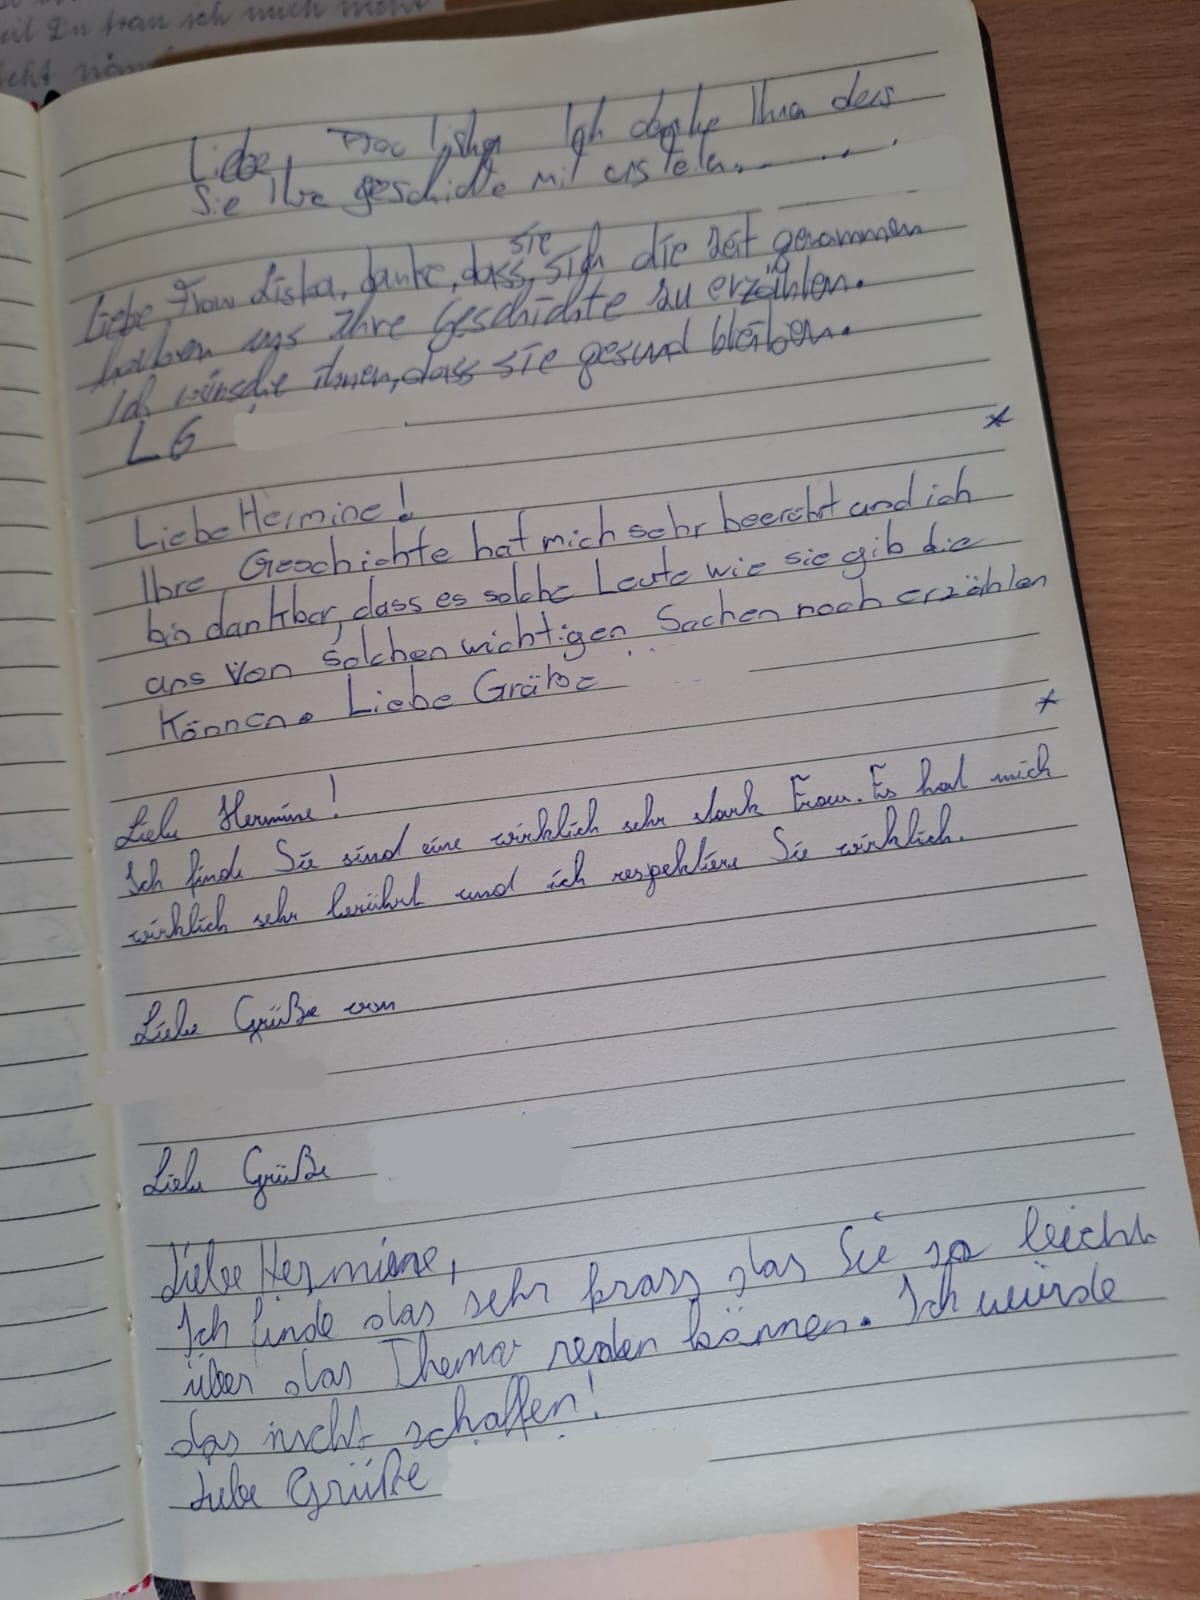 eil Du trau ich mich nicht
Liebe, Frau Lisker Ich danke Ihnen dass
Sie Ihre geschichte mit ersteln.
Liebe Frau Liska, danke, dass, sie sich die zeit genommen
haben uns Ihre Geschichte zu erzählen.
Ich wünsche ihnen, dass sie gesund bleiben.
LG
Liebe Hermine!
Ihre Geschichte hat mich sehr beerührt und ich
bin dankbar, dass es solche Leute wie sie gib die
uns von solchen wichtigen Sachen noch erzählen
Können. Liebe Grüße
Liebe Hermine!
Ich finde Sie sind eine wirklich sehr stark Frau. Es hat mich
wirklich sehr berührt und ich respektiere Sie wirklich.
Liebe Grüße von
Liebe Grüße
Liebe Hermine,
Ich finde das sehr krass das Sie so leicht
über das Thema reden können. Ich würde
das nicht schaffen!
Liebe Grüße